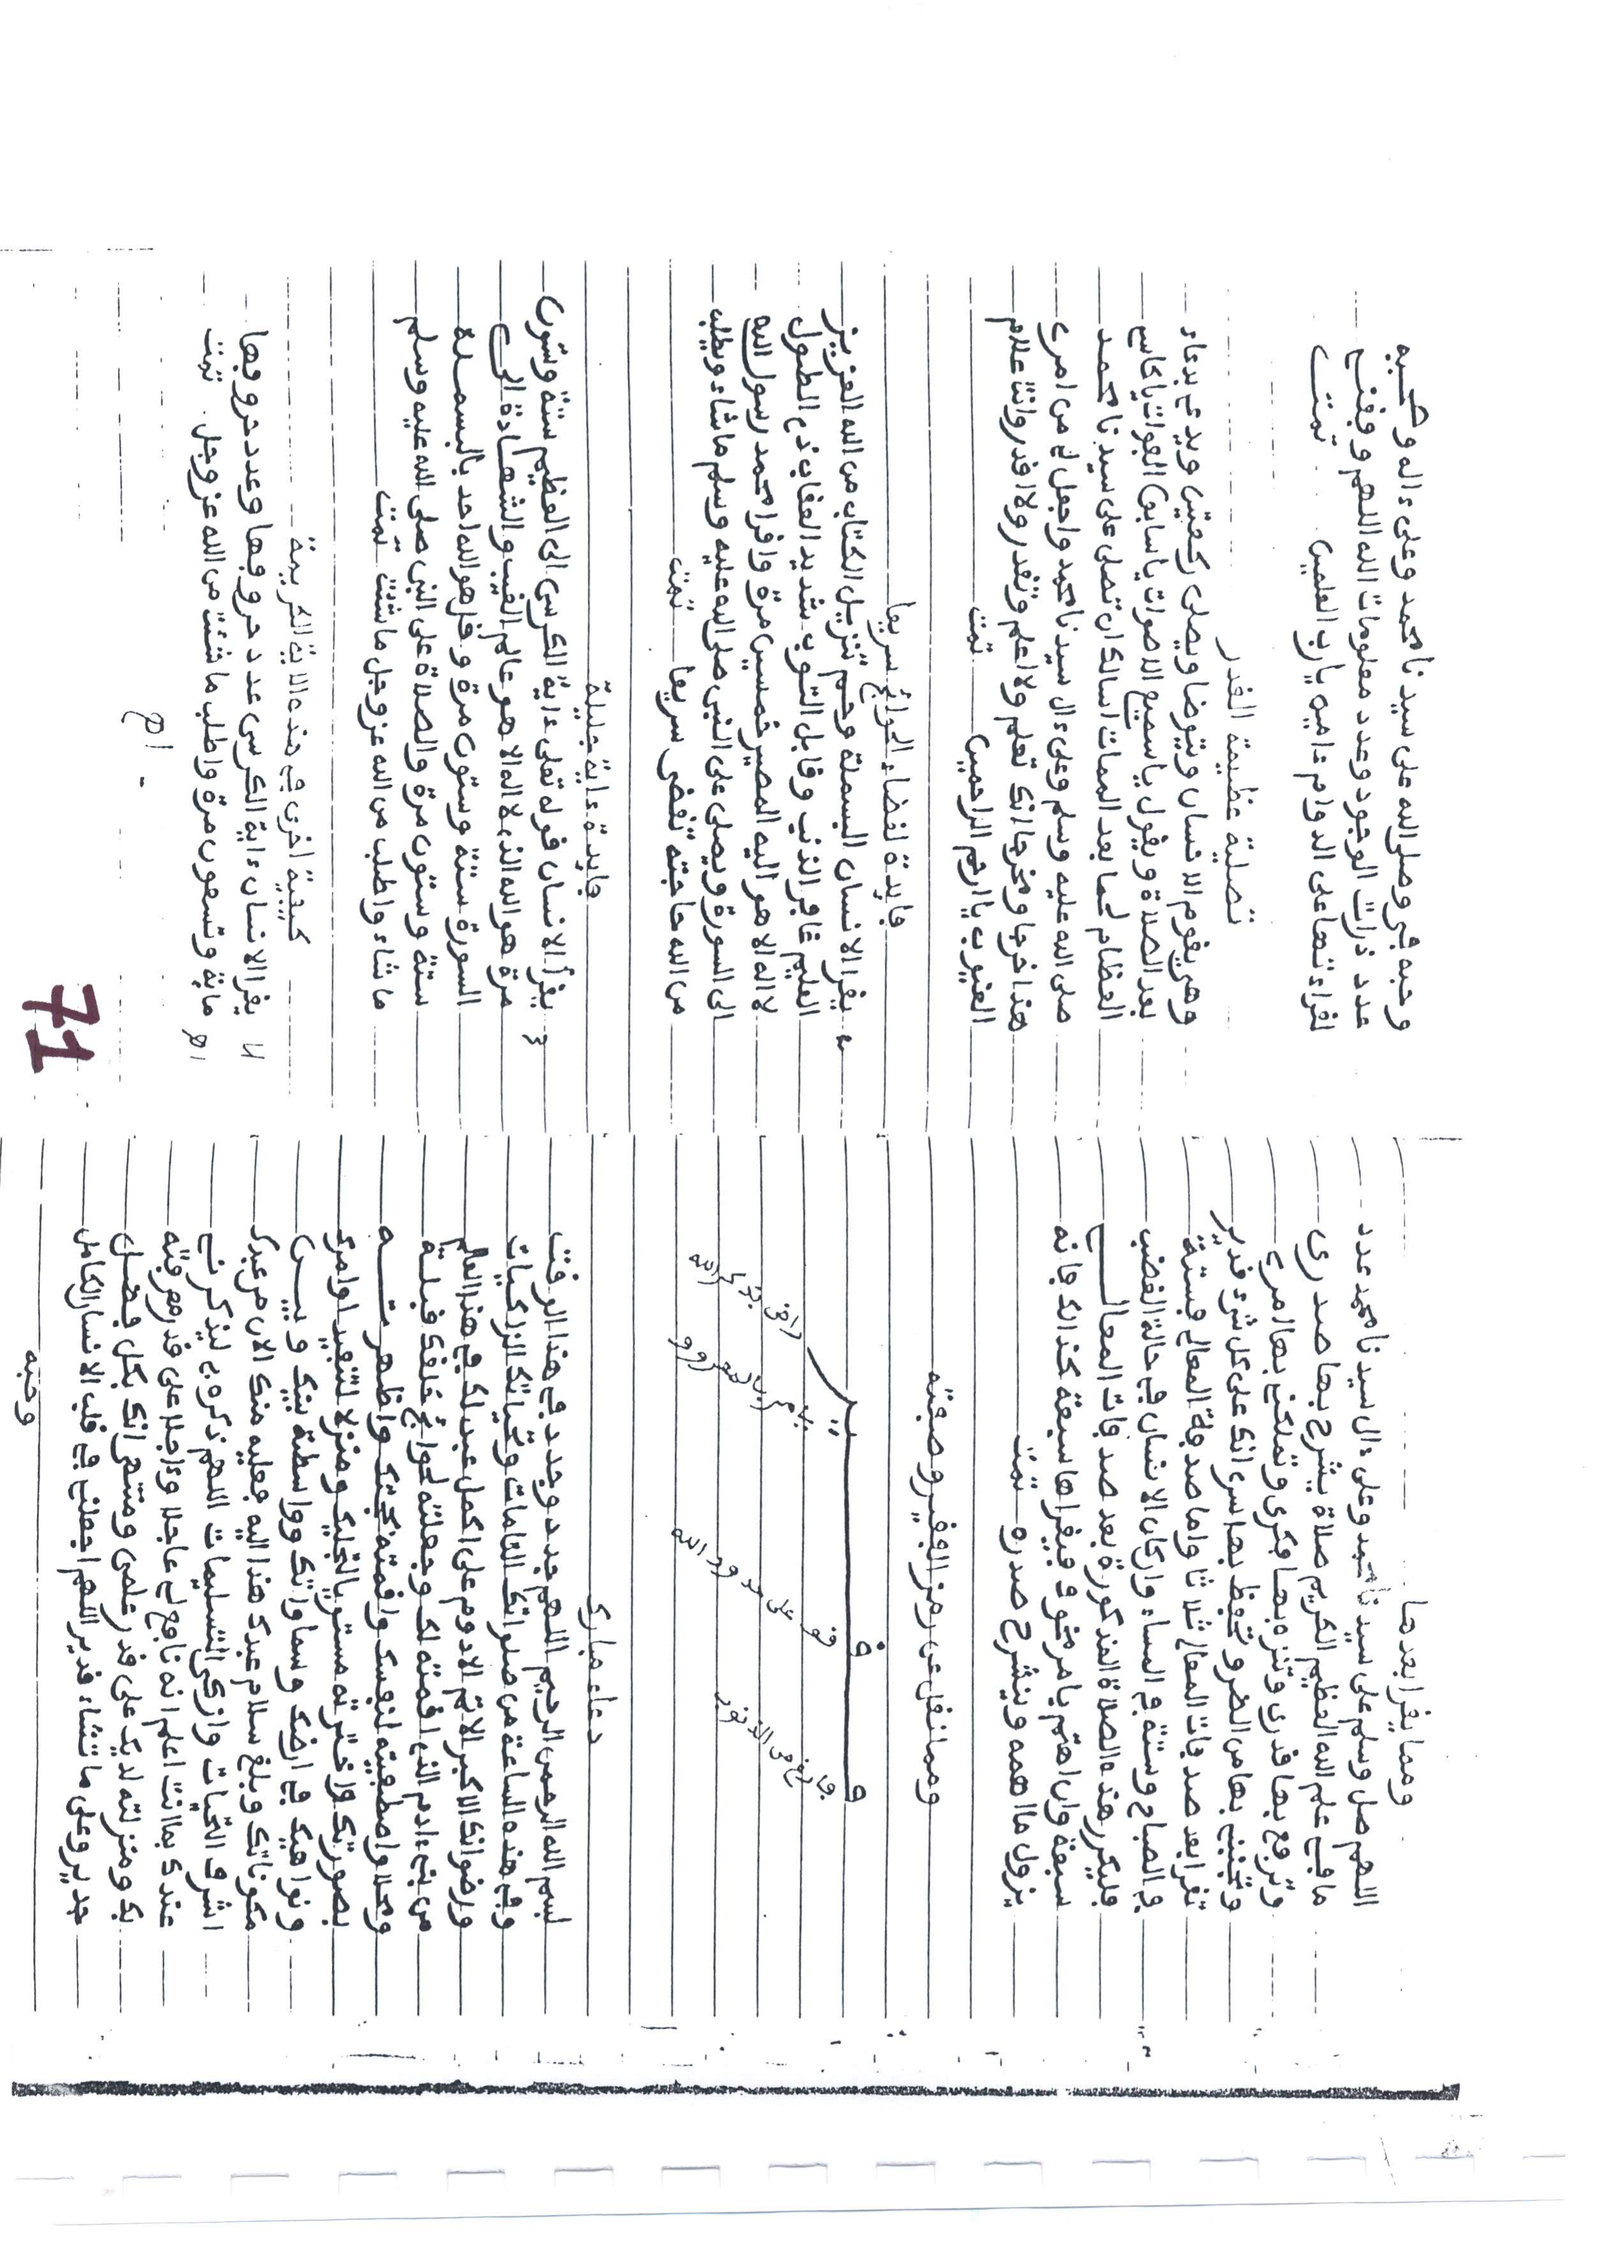 ومما يقرا بعدها
اللهم صل وسلم على سيدنا محمد وعلى ءال سيدنا محمد عدد
ما في علم الله العظيم الكريم صلاة يشرح بها صدرى
وترفع بها قدرى وتنزه بها فكرى وتملكنى بها امرى
وتجنبنى بها من الضر وتحفظ بها سرى انك على كل شىء قدير
تقرا بعد صدقات المعالى ثلاثا واما صدقة المعالى فستة
في الصباح وستة في المساء وان كان الانسان في حالة الغضب
فليكرر هذه الصلاة المذكورة بعد صدقات المعالى
سبعة وان اهتم بامر مخوف فيقراها سبعة كذالك فانه
يزول ما اهمه وينشرح صدره تمت
ومما نقل عن رمز الفقير وصفته
دعاء مبارك
بسم الله الرحمن الرحيم اللهم جدد وجدد في هذا الوقت
وفي هذه الساعة من صلواتك التامات وتحياتك الزاكيات
ورضوانك الاكبر الاتم الادوم على اكمل عبد لك في هذا العالم
من بنى ءادم الذى اقمته لك وجعلته لحوائج خلقك قبلة
ومحلا واصطفيته لنفسك واقمته بحجتك واظهرته
بصورتك واخترته مستوى لتجليك ومنزلا لتنفيذ اوامرك
ونواهيك في ارضك وسماواتك وواسطة بينك وبين
مكوناتك وبلغ سلام عبدك هذا اليه فعليه منك الان من عبدك
اشرف التحيات وازكى التسليمات اللهم ذكره بى ليذكرنى
عندك بما انت اعلم انه نافع لى عاجلا وءاجلا على قدر معرفته
بك ومنزلته لديك على قدر علمى ومنتهى انك بكل فضل
جدير وعلى ما تشاء قدير اللهم اجعلنى في قلب الانسان الكامل
وحبه
وحبه في وصل الله على سيدنا محمد وعلى ءاله وصحبه
عدد ذرات الوجود وعدد معلومات الله اللهم وفقنى
لقراءتها على الدوام ءامين يا رب العلمين تمت
تصلية عظيمة القدر
وهى يقوم الانسان ويتوضا ويصلى ركعتين ويدعى بدعاء
بعد الصلاة ويقول يا سميع الاصوات يا سابق الفوات يا كاسى
العظام لحما بعد الممات اسالك ان تصلى على سيدنا محمد
صلى الله عليه وسلم وعلى ءال سيدنا محمد واجعل لى من امرى
هذا فرجا ومخرجا انك تعلم ولا اعلم وتقدر ولا اقدر وانت علام
الغيوب يا ارحم الراحمين تمت
فايدة لقضاء الحوائج سريعا
يقرا الانسان البسملة وحم تنزيل الكتاب من الله العزيز
العليم غافر الذنب وقابل التوب شديد العقاب ذى الطول
لا اله الا هو اليه المصير خمسين مرة واقرا محمد رسول الله
الى السورة ويصلى على النبى صلى الله عليه وسلم ما شاء ويطلب
من الله حاجته تقضى سريعا تمت
فايدة ءاية جليلة
يقرأ الانسان قوله تعلى ءاية الكرسى الى العظيم ستة وستون
مرة هو الله الذى لا اله الا هو عالم الغيب والشهادة الى
السورة ستة وستون مرة وقل هو الله احد بالبسملة
ستة وستون مرة والصلاة على النبى صلى الله عليه وسلم
ما شاء واطلب من الله عز وجل ما شئت تمت
كيفية اخرى في هذه الاية الكريمة
يقرا الانسان ءاية الكرسى عدد حروفها وعدد حروفها
ماية وتسعون مرة واطلب ما شئت من الله عز وجل تمت
اهـ
71